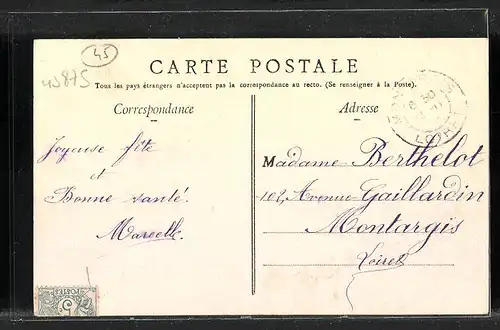 45
45875
CARTE POSTALE
Tous les pays étrangers n'acceptent pas la correspondance au recto. (Se renseigner à la Poste).
Correspondance
Adresse
Joyeuse fête
et
Bonne santé.
Marcelle.
Madame Berthelot
102, Avenue Gaillardin
Montargis
Loiret
LOIRET
POSTES
5